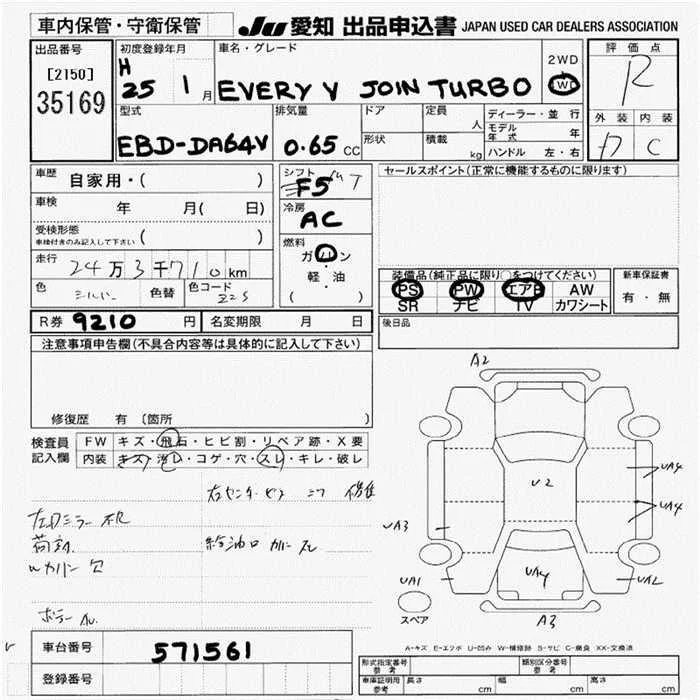 車内保管・守衛保管 JU 愛知 出品申込書 JAPAN USED CAR DEALERS ASSOCIATION
出品番号 初度登録年月 車名・グレード 2WD 評価点
[2150] H 4WD R
35169 25 1月 EVERY V JOIN TURBO 外装 内装
型式 排気量 ドア 定員 人 ディーラー・並行 D C
モデル年式 年
EBD-DA64V 0.65 CC 形状 積載 kg ハンドル 左・右
車歴 自家用・( ) シフト F5 セールスポイント(正常に機能するものに限ります)
車検 年 月( 日) 冷房 AC
受検形態 ( )
車検付きのみ記入して下さい
燃料 ガソリン
走行 24万3千710km 軽・油
( )
装備品(純正品に限り○をつけてください) 新車保証書
色 シルバー 色替 色コード Z2S PS PW エアB AW 有・無
SR ナビ TV カワシート
R券 9210 円 名変期限 月 日 後日品
注意事項申告欄(不具合内容等は具体的に記入して下さい)
修復歴 有 〔箇所
検査員 FW キズ・飛石・ヒビ割・リペア跡・X要
記入欄 内装 キズ・汚レ・コゲ・穴・スレ・キレ・破レ
A2
U2
UA4
UA4
UA3
左ドアミラー
給油口 カバー
UA1 UA4 UA2
スペア A3
A-キズ E-エクボ U-凹み W-補修跡 S-サビ C-腐食 XX-交換済
車台番号 571561
登録番号
型式指定番号 参考 類別区分番号 参考
車庫証明用 参考 長さ cm 幅 cm 高さ cm